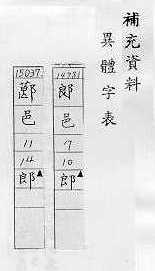 補充資料
異體字表
14731
郞
邑
7
10
郎▲
15037
邑
11
14
郎▲